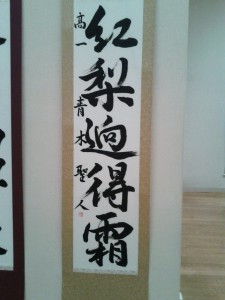 紅梨迥得霜
高一 青木聖人